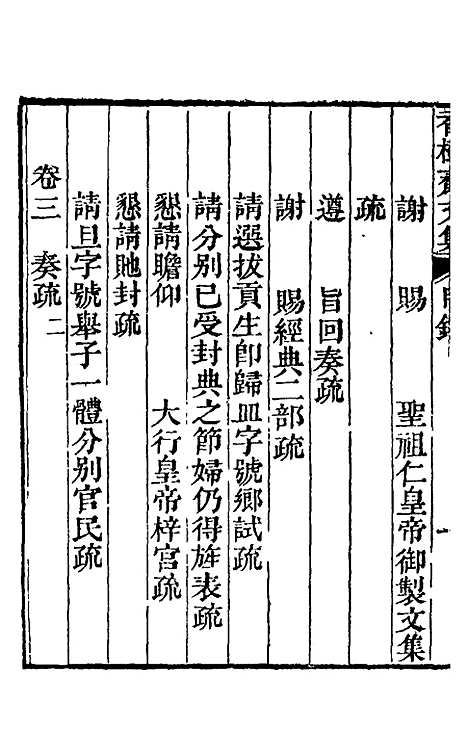 謝　賜　聖祖仁皇帝御製文集
疏
遵　旨回奏疏
謝　賜經典二部疏
請選拔貢生卽歸皿字號鄉試疏
請分別已受封典之節婦仍得旌表疏
懇請瞻仰　大行皇帝梓宮疏
懇請貤封疏
請旦字號舉子一體分別官民疏
卷三　奏疏二